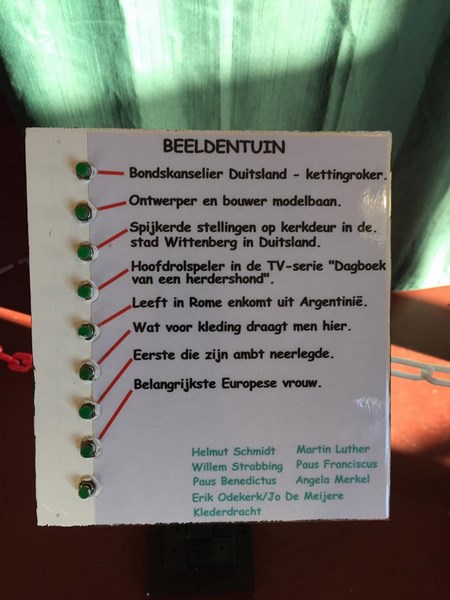 BEELDENTUIN
Bondskanselier Duitsland - kettingroker.
Ontwerper en bouwer modelbaan.
Spijkerde stellingen op kerkdeur in de.
stad Wittenberg in Duitsland.
Hoofdrolspeler in de TV-serie "Dagboek
van een herdershond".
Leeft in Rome enkomt uit Argentinië.
Wat voor kleding draagt men hier.
Eerste die zijn ambt neerlegde.
Belangrijkste Europese vrouw.
Helmut Schmidt Martin Luther
Willem Strabbing Paus Franciscus
Paus Benedictus Angela Merkel
Erik Odekerk/Jo De Meijere
Klederdracht